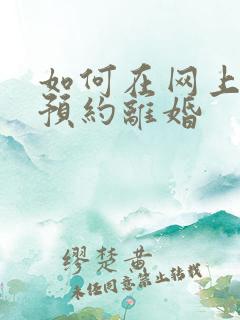 如何在网上
預約離婚
缪楚黄
未经同意禁止转载